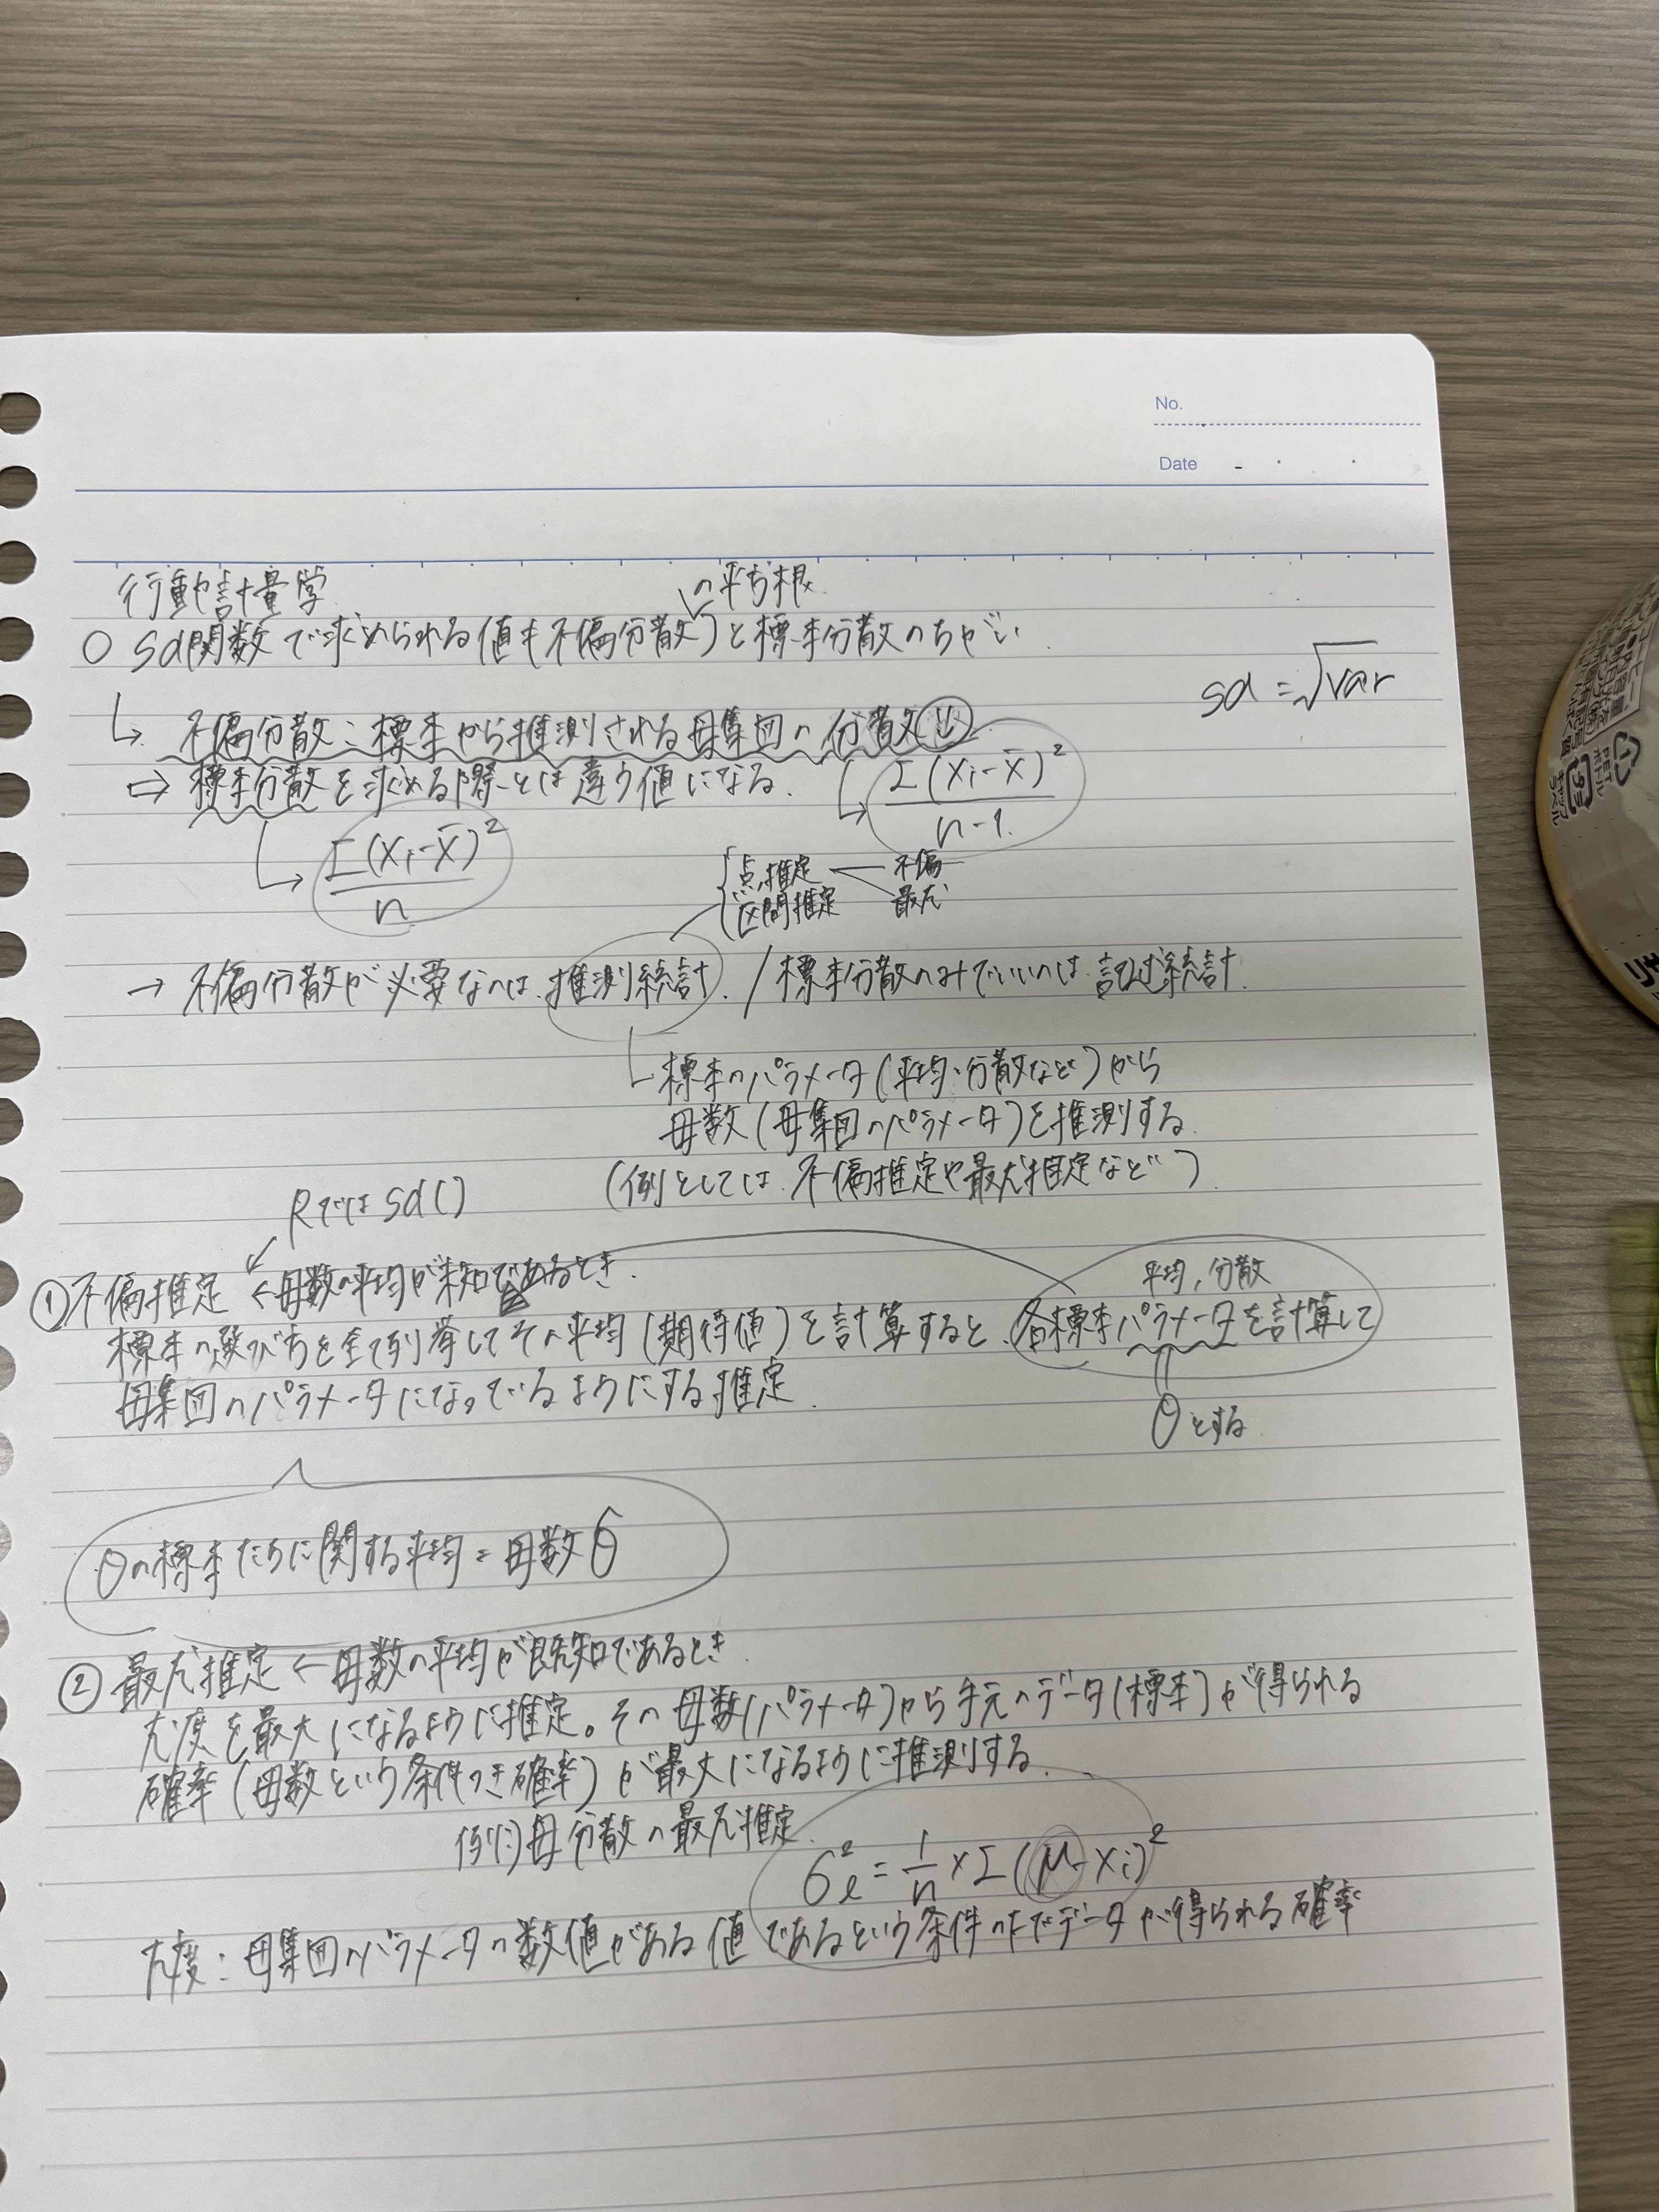 No.
Date
行動計量学
の平方根
○ sd関数で求められる値も不偏分散)と標本分散のちがい
sd = √var
不偏分散:標本から推測される母集団の分散(U)
⇒ 標本分散を求める際とは違う値になる.
Σ(xi-x̄)² / n-1.
Σ(xi-x̄)² / n
点推定 不偏
区間推定 最尤
→ 不偏分散が必要なのは.推測統計. / 標本分散のみでいいのは.記述統計.
標本のパラメータ(平均・分散など)から
母数(母集団のパラメータ)を推測する.
(例としては.不偏推定や最尤推定など)
Rではsd()
①不偏推定 ←母数の平均が未知であるとき.
平均,分散
標本の選び方を全て列挙してその平均(期待値)を計算すると、各標本パラメータを計算して
母集団のパラメータになっているようにする推定.
θとする.
θの標本たちに関する平均=母数θ
② 最尤推定 ← 母数の平均が既知であるとき.
尤度を最大になるように推定。その母数(パラメータ)から手元のデータ(標本)が得られる
確率(母数という条件つき確率)が最大になるように推測する.
例)母分散の最尤推定.
σ²ℓ = 1/n × Σ(μ-xi)²
尤度:母集団のパラメータの数値がある値であるという条件の下でデータが得られる確率